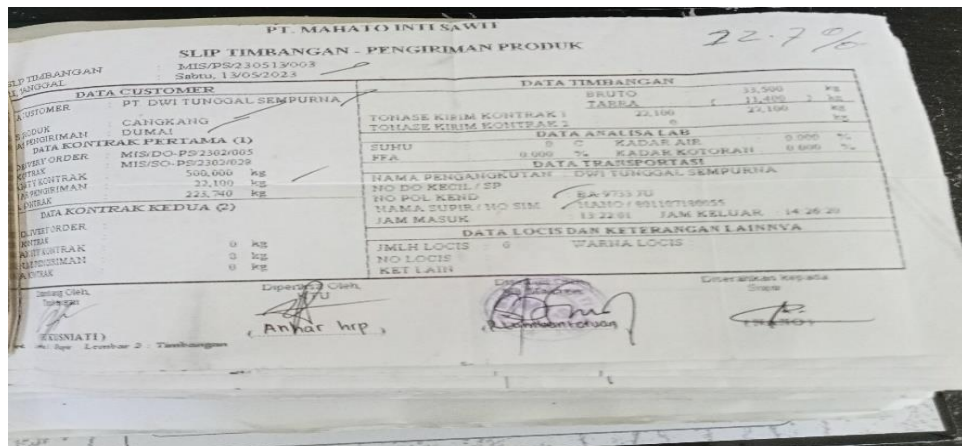 PT. MAHATO INTI SAWIT
SLIP TIMBANGAN - PENGIRIMAN PRODUK
22.7 %
SLIP TIMBANGAN : MIS/PS/230513/003
TANGGAL : Sabtu, 13/05/2023
DATA CUSTOMER
CUSTOMER : PT DWI TUNGGAL SEMPURNA
PRODUK : CANGKANG
PENGIRIMAN : DUMAI
DATA KONTRAK PERTAMA (1)
DELIVERY ORDER : MIS/DO-PS/2302/005
KONTRAK : MIS/SO-PS/2302/029
KONTRAK 500,000 kg
PENGIRIMAN 22,100 kg
KONTRAK 223,740 kg
DATA KONTRAK KEDUA (2)
DELIVERY ORDER :
KONTRAK
KONTRAK 0 kg
PENGIRIMAN 0 kg
KONTRAK 0 kg
DATA TIMBANGAN
BRUTO 33,500 kg
TARRA ( 11,400 ) kg
TONASE KIRIM KONTRAK 1 22,100 22,100 kg
TONASE KIRIM KONTRAK 2 0 kg
DATA ANALISA LAB
SUHU 0 C KADAR AIR 0.000 %
FFA 0.000 % KADAR KOTORAN 0.000 %
DATA TRANSPORTASI
NAMA PENGANGKUTAN : DWI TUNGGAL SEMPURNA
NO DO KECIL / SP
NO POL KEND : BA-9733 JU
NAMA SUPIR / NO SIM : NANO / 801107180055
JAM MASUK : 13:22:01 JAM KELUAR 14:26:20
DATA LOCIS DAN KETERANGAN LAINNYA
JMLH LOCIS : 0 WARNA LOCIS :
NO LOCIS
KET LAIN
Oleh,
Diperiksa Oleh,
Diserahkan Kepada
Supir
(KUSNIATI)
( Anhar hrp )
(NANO)
Lembar 2 : Timbangan